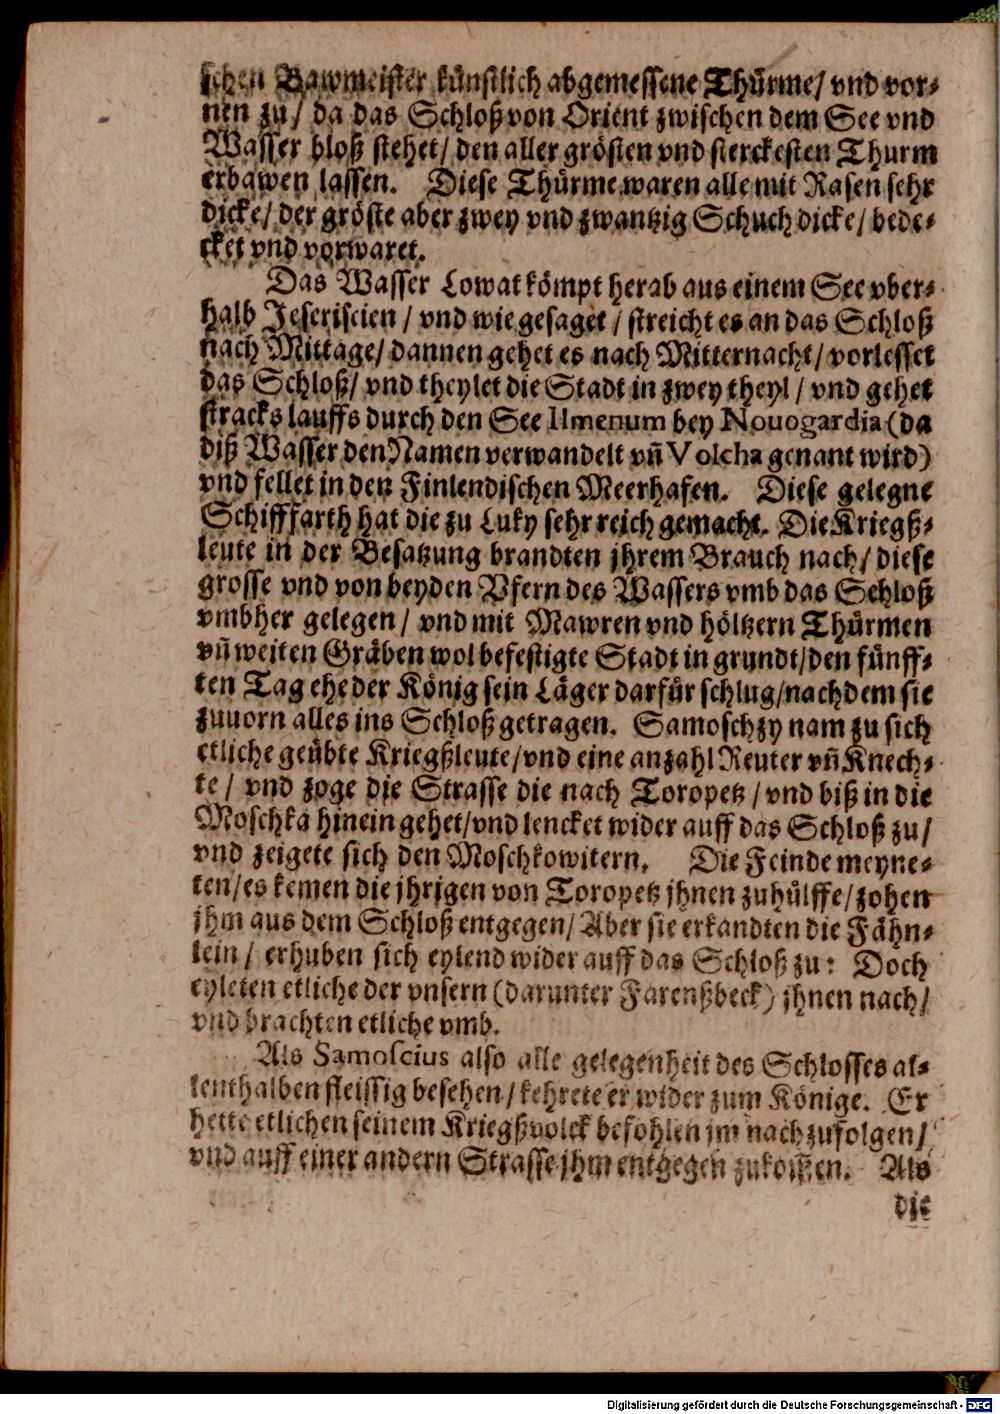 schen Bawmeister künstlich abgemessene Thürme/ vnd vor-
nen zu/ da das Schloß von Orient zwischen dem See vnd
Wasser bloß stehet/ den aller grösten vnd sterckesten Thurm
erbawen lassen. Diese Thürme waren alle mit Rasen sehr
dicke/ der gröste aber zwey vnd zwantzig Schuch dicke/ bede-
cket vnd vorwaret.
Das Wasser Lowat kömpt herab aus einem See vber-
halb Jeseriscien / vnd wie gesaget / streicht es an das Schloß
nach Mittage/ dannen gehet es nach Mitternacht/ vorlesset
das Schloß/ vnd theylet die Stadt in zwey theyl / vnd gehet
stracks lauffs durch den See Ilmenum bey Nouogardia (da
diß Wasser den Namen verwandelt vn̄ Volcha genant wird)
vnd fellet in den Finlendischen Meerhafen. Diese gelegne
Schifffarth hat die zu Luky sehr reich gemacht. Die Kriegß-
leute in der Besatzung brandten jhrem Brauch nach/ diese
grosse vnd von beyden Vfern des Wassers vmb das Schloß
vmbher gelegen/ vnd mit Mawren vnd höltzern Thürmen
vn̄ weiten Gräben wol befestigte Stadt in grundt/ den fünff-
ten Tag ehe der König sein Läger darfür schlug/ nach dem sie
zuuorn alles ins Schloß getragen. Samoschzy nam zu sich
etliche geübte Kriegßleute/ vnd eine anzahl Reuter vn̄ Knech-
te/ vnd zoge die Strasse die nach Toropetz / vnd biß in die
Moschka hinein gehet/ vnd lencket wider auff das Schloß zu/
vnd zeigete sich den Moschkowitern. Die Feinde meyne-
ten/ es kemen die jhrigen von Toropetz jhnen zuhülffe/ zohen
jhm aus dem Schloß entgegen/ Aber sie erkandten die Fähn-
lein/ erhuben sich eylend wider auff das Schloß zu: Doch
eyleten etliche der vnsern (darunter Farenßbeck) jhnen nach/
vnd brachten etliche vmb.
Als Samoscius also alle gelegenheit des Schlosses al-
lenthalben fleissig besehen/ kehrete er wider zum Könige. Er
hette etlichen seinem Kriegßvolck befohlen jm nachzufolgen/
vnd auff einer andern Strasse jhm entgegen zukom̄en. Als
die
Digitalisierung gefördert durch die Deutsche Forschungsgemeinschaft - DFG